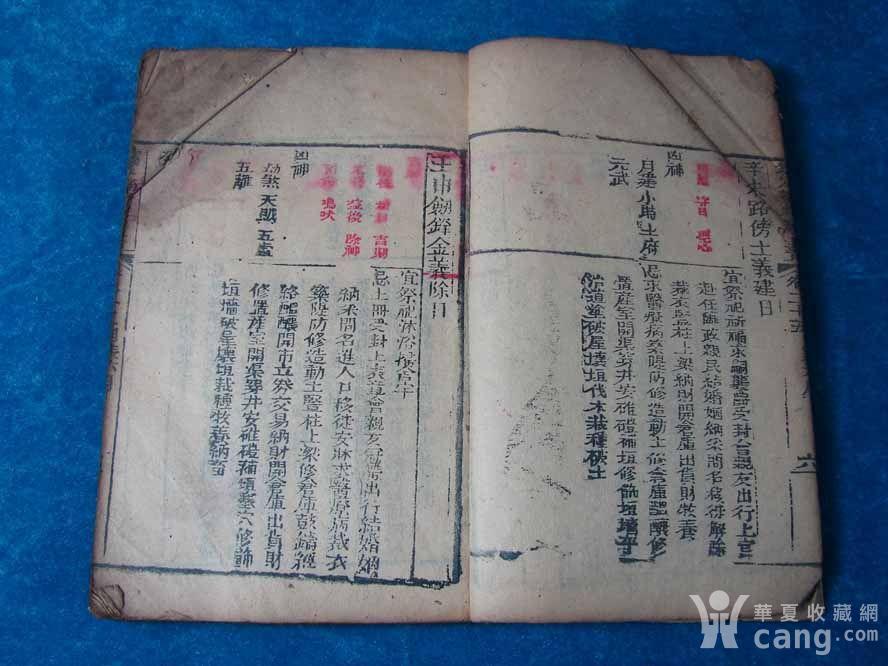 辛未路傍土義建日
凶神
月建 小時 土府
元武
宜祭祀祈福求嗣襲爵受封會親友出行上官
赴任臨政親民結婚姻納采問名移徙解除
裁衣豎柱上梁納財開倉庫出貨財牧養
忌求醫療病築隄防修造動土修倉庫醞釀修
置產室開渠穿井安碓磑補垣修飾垣墻平
治道塗破屋壞垣伐木栽種破土
六
壬申劍鋒金義除日
除神
鳴吠
凶神
劫煞 天賊 五虛
五離
宜祭祀沐浴掃舍宇
忌上冊受封上表章會親友冠帶出行結婚姻
納采問名進人口移徙安牀求醫療病裁衣
築隄防修造動土豎柱上梁修倉庫鼓鑄經
絡醞釀開市立券交易納財開倉庫出貨財
修置產室開渠穿井安碓磑補垣塞穴修飾
垣墻破屋壞垣栽種牧養納畜
華夏收藏網
cang.com